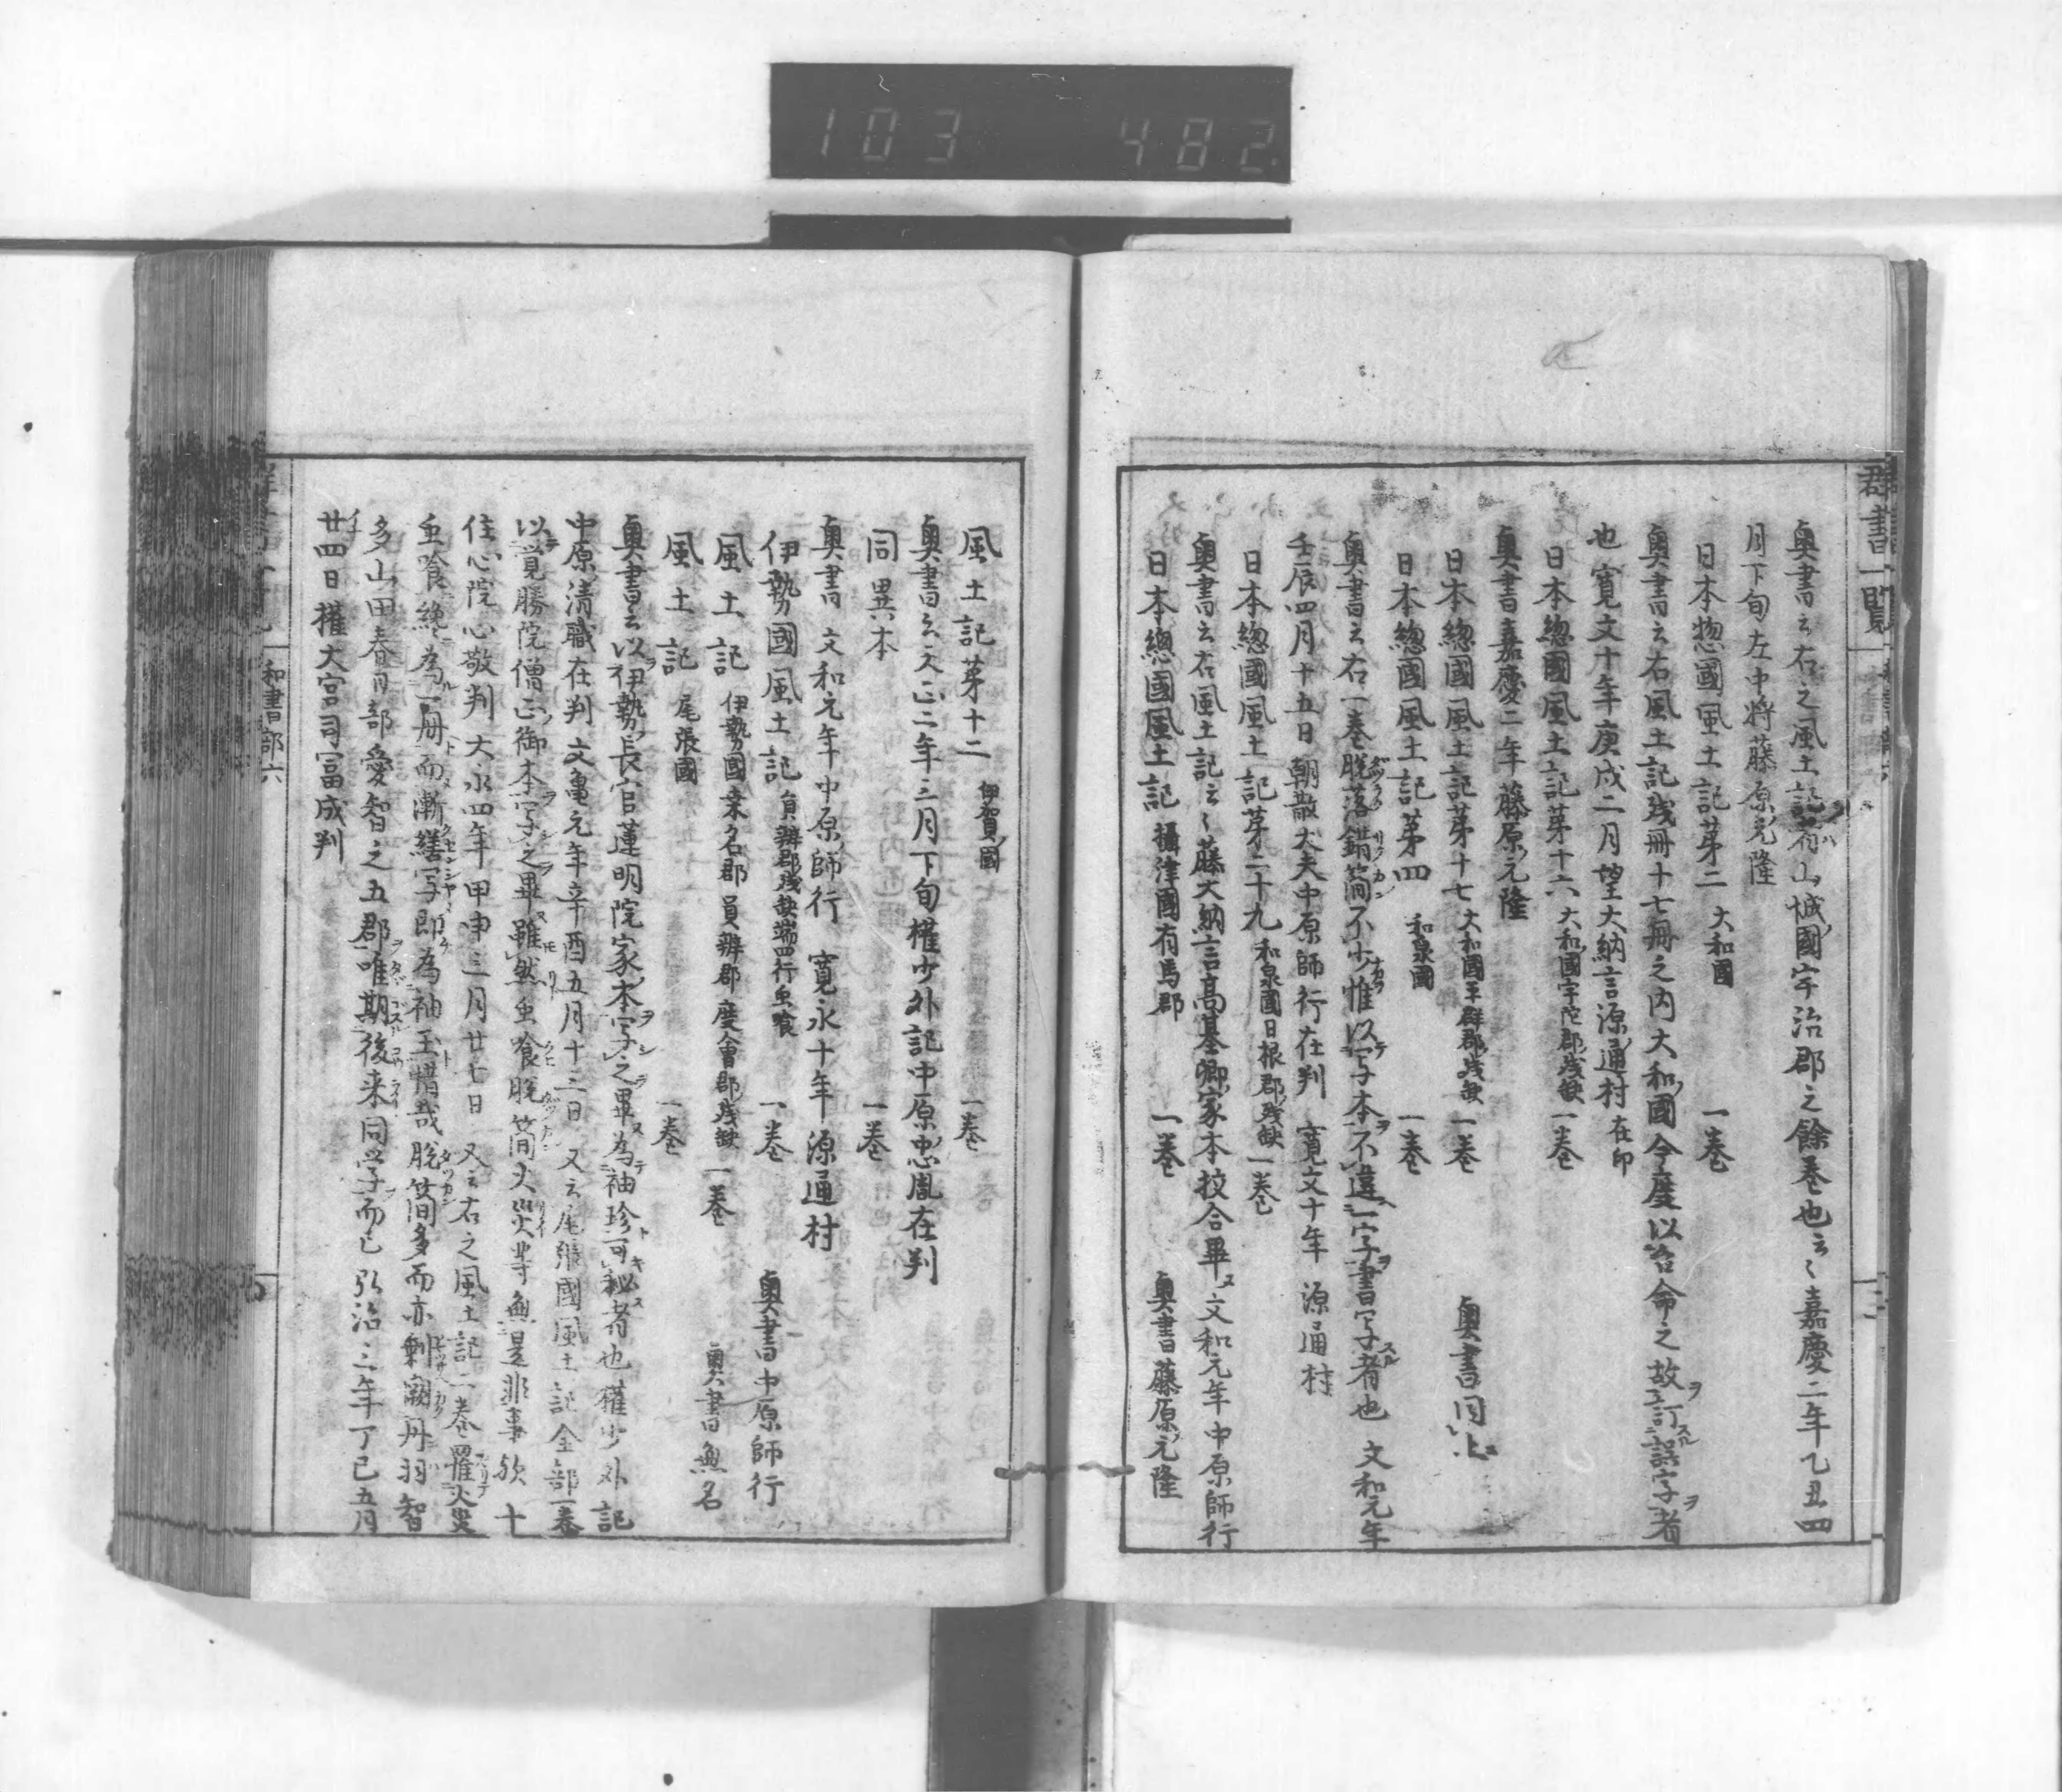 103 482
群書一覧
奥書云右之風土記者山城國宇治郡之餘巻也云々嘉慶二年乙丑四
月下旬左中将藤原元隆
日本惣國風土記第二 大和國 一巻
奥書云右風土記残冊十七冊之内大和國今度以台命之故訂誤字者
也寛文十年庚戌二月望大納言源通村 在印
日本總國風土記第十六 大和國宇陀郡残缺 一巻
奥書嘉慶二年藤原元隆
日本總國風土記第十七 大和國平群郡残缺 一巻 奥書同上
日本總國風土記第四 和泉國 一巻
奥書云右一巻脱落錯簡不少惟以写本不違一字書写者也 文和元年
壬辰四月十五日朝散大夫中原師行在判 寛文十年 源通村
日本總國風土記第二十九 和泉國日根郡残缺 一巻
奥書云右風土記云々藤大納言高基卿家本挍合畢文和元年中原師行
日本總國風土記 攝津國有馬郡 一巻 奥書藤原元隆
風土記第十二 伊賀國 一巻
奥書云天正二年三月下旬權少外記中原忠胤在判
同異本 一巻
奥書 文和元年中原師行 寛永十年源通村
伊勢國風土記 員辨郡残缺端四行虫喰 一巻 奥書中原師行
風土記 伊勢國桒名郡員辨郡度會郡残缺 一巻 奥書無名
風土記 尾張國 一巻
奥書云以伊勢長官蓮明院家本写之畢為袖珍可秘者也權少外記
中原清職在判文亀元年辛酉五月十三日 又云尾張國風土記全部一巻
以覚勝院僧正御本写之畢雖然虫喰脱簡火災等無是非事欤 十
住心院心敬判大永四年甲申三月廿七日 又云右之風土記二巻罹火災
虫喰纔為一冊而漸繕写即為袖玉惜哉脱簡多而亦剰闕丹羽智
多山田春部愛智之五郡唯期後来同学而已弘治三年丁巳五月
廿四日權大宮司富成判
和書部六